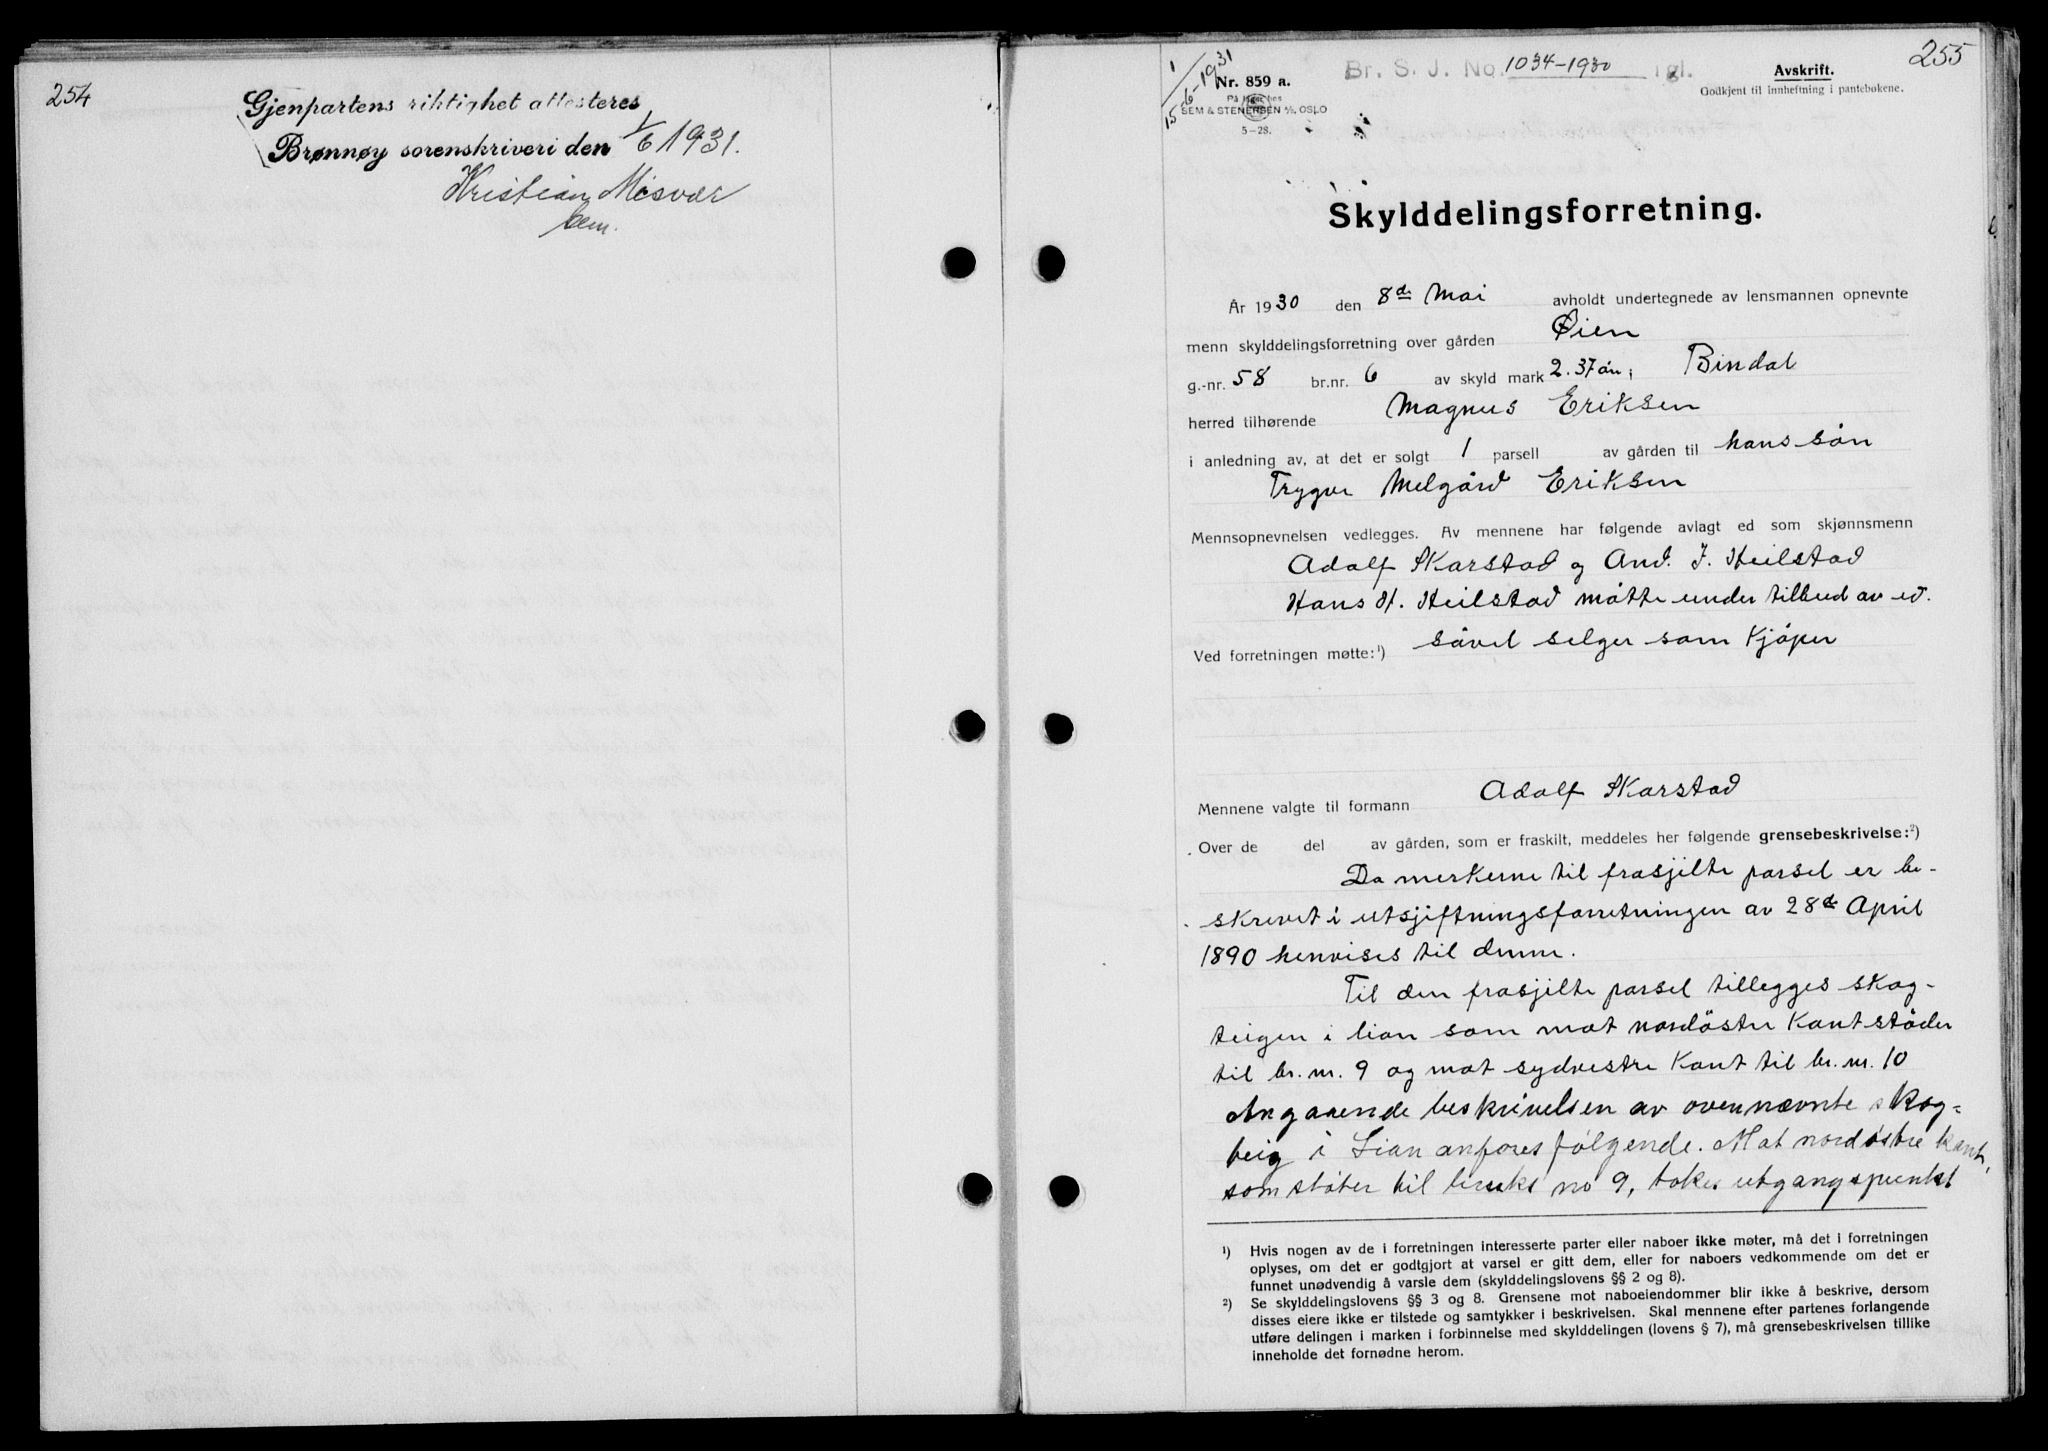 254
Gjenpartens riktighet attesteres
Brønnøy sorenskriveri den 1/6 1931.
Kristian Misvær
bem.
255
1
15/6-1931
Nr. 859 a.
På lager hos
SEM & STENERSEN A/S, OSLO
5-28.
Br. S. J. No. 1034-1930 tgl.
Avskrift.
Godkjent til innheftning i pantebøkene.
Skylddelingsforretning.
År 1930 den 8de Mai avholdt undertegnede av lensmannen opnevnte
menn skylddelingsforretning over gården Øien
g.-nr. 58 br.nr. 6 av skyld mark 2.37 ører i Bindal
herred tilhørende Magnus Eriksen
i anledning av, at det er solgt 1 parsell av gården til hans søn
Trygve Melgård Eriksen
Mennsopnevnelsen vedlegges. Av mennene har følgende avlagt ed som skjønnsmenn
Adolf Skarstad og And. J. Heilstad
Hans H. Heilstad møtte under tilbud av ed.
Ved forretningen møtte:¹) såvel selger som kjøper
Mennene valgte til formann Adolf Skarstad
Over de del av gården, som er fraskilt, meddeles her følgende grensebeskrivelse:²)
Da merkerne til frasjilte parsel er be-
skrevet i utsjiftningsforretningen av 28de April
1890 henvises til denne.
Til den frasjilte parsel tillegges skog-
teigen i lian som mot nordøstre kant støder
til br. nr. 9 og mot sydvestre kant til br. nr. 10
Angaaende beskrivelsen av ovennævnte skog-
teig i Lian anføres følgende. Mot nordøstre kant,
som støter til bruks no 9, tokes utgangspunkt
¹) Hvis nogen av de i forretningen interesserte parter eller naboer ikke møter, må det i forretningen
oplyses, om det er godtgjort at varsel er gitt dem, eller for naboers vedkommende om det er
funnet unødvendig å varsle dem (skylddelingslovens §§ 2 og 8).
²) Se skylddelingslovens §§ 3 og 8. Grensene mot naboeiendommer blir ikke å beskrive, dersom
disses eiere ikke er tilstede og samtykker i beskrivelsen. Skal mennene efter partenes forlangende
utføre delingen i marken i forbinnelse med skylddelingen (lovens § 7), må grensebeskrivelsen tillike
inneholde det fornødne herom.